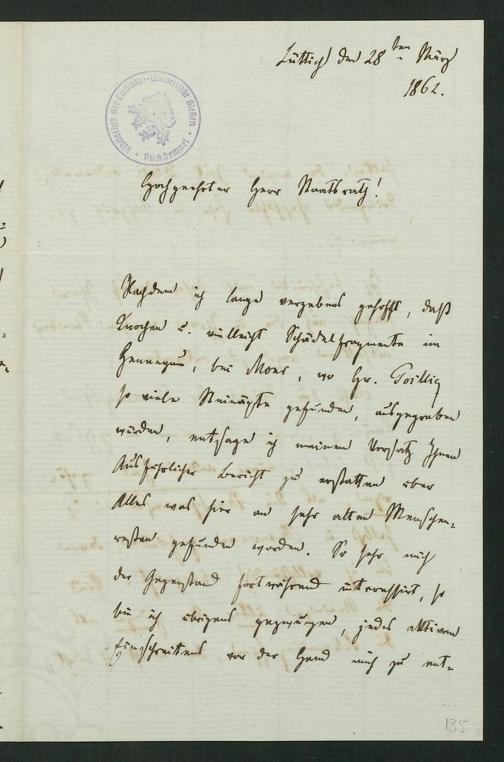 Lüttich den 28ten März
1862.
Bibliothek der Ludwigs-Universität Gießen
Buchstempel
Hochgeehrter Herr Staatsrath!
Nachdem ich lange vergebens gehofft, daß
Knochen u. vielleicht Schädelfragmente im
Hennegau, bei Mons, wo Hr.
so viele Steinäxte gefunden, ausgegraben
würden, entsage ich meinem Vorsatz Ihnen
Ausführlicher Bericht zu erstatten über
Alles was hier an sehr alten Menschen-
resten gefunden worden. So sehr mich
der Gegenstand fortwährend interessirt, so
bin ich übrigens gezwungen, jedes aktiven
Einschreitens vor der Hand mich zu ent-
135